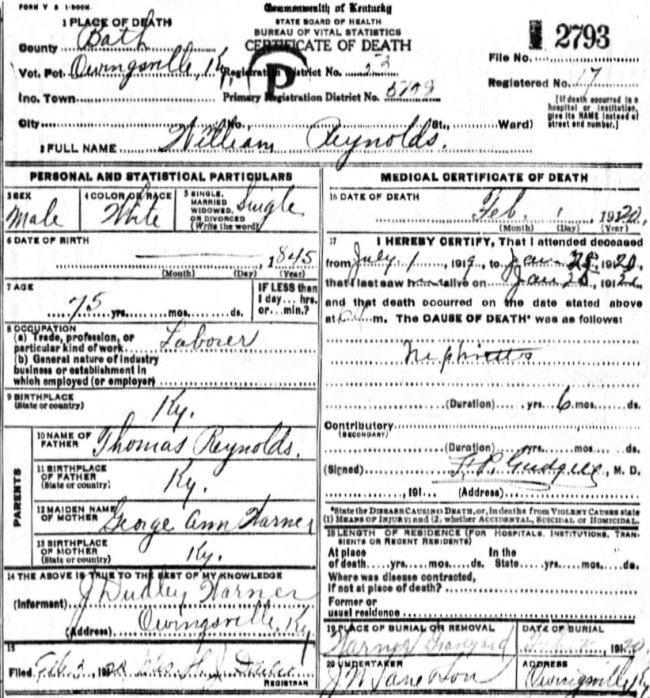 FORM V S 1-500M.
Commonwealth of Kentucky
STATE BOARD OF HEALTH
BUREAU OF VITAL STATISTICS
CERTIFICATE OF DEATH
1 PLACE OF DEATH
County Bath
Vot. Pct. Owingsville, Ky. Registration District No. 53
Inc. Town Primary Registration District No.
City (No. St., Ward)
2793
File No.
Registered No. 17
[If death occurred in a
hospital or institution,
give its NAME instead of
street and number.]
2 FULL NAME William Reynolds.
PERSONAL AND STATISTICAL PARTICULARS
3 SEX Male
4 COLOR OR RACE White
5 SINGLE, MARRIED WIDOWED, OR DIVORCED (Write the word) Single
6 DATE OF BIRTH
1845
(Month) (Day) (Year)
7 AGE
75 yrs. mos. ds.
IF LESS than
1 day... hrs.
or... min.?
8 OCCUPATION
(a) Trade, profession, or
particular kind of work Laborer
(b) General nature of industry
business or establishment in
which employed (or employer)
9 BIRTHPLACE
(State or country) Ky.
PARENTS
10 NAME OF
FATHER Thomas Reynolds.
11 BIRTHPLACE
OF FATHER
(State or country) Ky.
12 MAIDEN NAME
OF MOTHER George Ann Warner
13 BIRTHPLACE
OF MOTHER
(State or country) Ky.
14 THE ABOVE IS TRUE TO THE BEST OF MY KNOWLEDGE
(Informant) J Dudley Warner
(Address) Owingsville, Ky
15
Filed Feb 3, 1920
REGISTRAR
MEDICAL CERTIFICATE OF DEATH
16 DATE OF DEATH
Feb. 1, 1920.
(Month) (Day) (Year)
17 I HEREBY CERTIFY, That I attended deceased
from July 1, 1919, to Jan 28, 1920,
that I last saw him alive on Jan 28, 19
and that death occurred on the date stated above
at m. The CAUSE OF DEATH* was as follows:
Nephritis
(Duration) yrs. 6 mos. ds.
Contributory
(SECONDARY)
(Duration) yrs. mos. ds.
(Signed) Gudgell, M. D.
, 191 (Address)
*State the DISEASE CAUSING DEATH, or, in deaths from VIOLENT CAUSES state
(1) MEANS OF INJURY; and (2, whether ACCIDENTAL, SUICIDAL OR HOMICIDAL.
18 LENGTH OF RESIDENCE (FOR HOSPITALS, INSTITUTIONS, TRAN-
SIENTS OR RECENT RESIDENTS)
At place In the
of death yrs. mos. ds. State yrs. mos. ds.
Where was disease contracted,
if not at place of death?
Former or
usual residence
19 PLACE OF BURIAL OR REMOVAL Warner Graveyard
DATE OF BURIAL 1920
20 UNDERTAKER
ADDRESS
Owingsville Ky